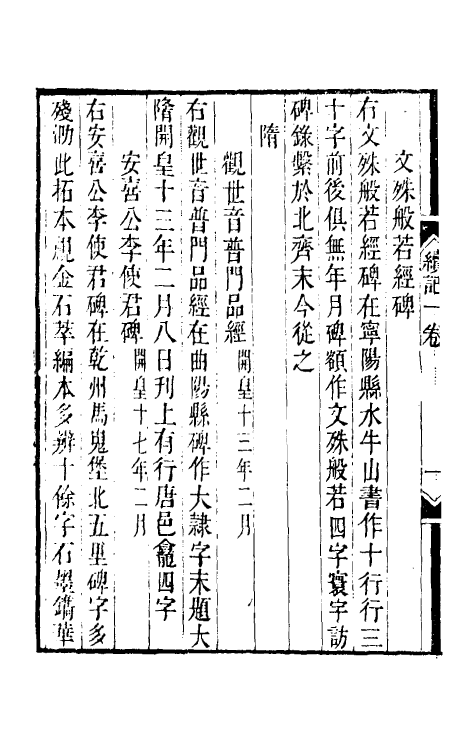 文殊般若經碑
右文殊般若經碑在寧陽縣水牛山書作十行行三
十字前後俱無年月碑額作文殊般若四字寰宇訪
碑錄繫於北齊末今從之
隋
觀世音普門品經開皇十三年二月
右觀世音普門品經在曲陽縣碑作大隸字末題大
隋開皇十三年二月八日刊上有行唐邑龕四字
安喜公李使君碑開皇十七年二月
右安喜公李使君碑在乾州馬嵬堡北五里碑字多
殘泐此拓本視金石萃編本多辨十餘字石墨鐫華
續記一卷